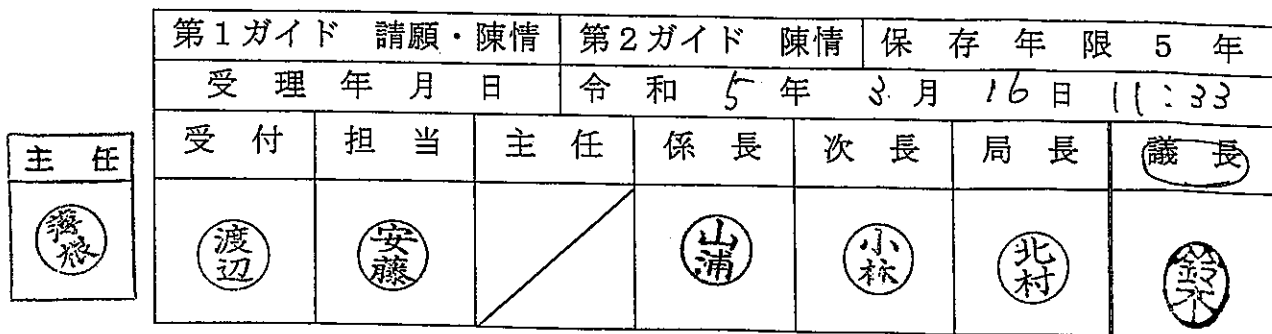 第1ガイド 請願・陳情 第2ガイド 陳情 保存年限5年
受理年月日 令和5年3月16日 11:33
主任 受付 担当 主任 係長 次長 局長 議長
渡辺 安藤 山浦 小林 北村 鈴木